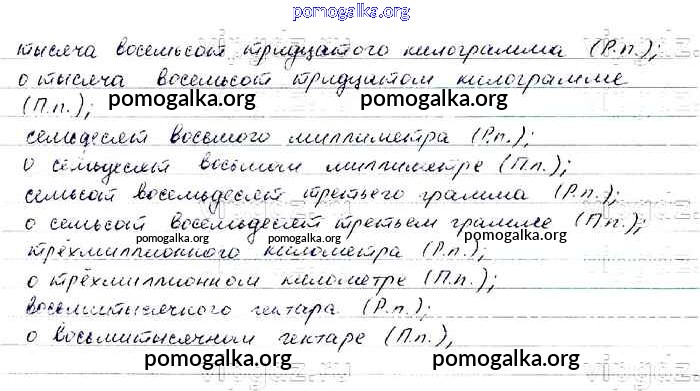 pomogalka.org
тысяча восемьсот тридцатого килограмма (Р.п.);
о тысяча восемьсот тридцатом килограмме
(П.п.);
pomogalka.org pomogalka.org
семьдесят восьмого миллиметра (Р.п.);
о семьдесят восьмом миллиметре (П.п.);
семьсот восемьдесят третьего грамма (Р.п.);
о семьсот восемьдесят третьем грамме (П.п.);
pomogalka.org pomogalka.org pomogalka.org
трёхмиллионного километра (Р.п.);
о трёхмиллионном километре (П.п.);
восьмитысячного гектара (Р.п.);
о восьмитысячном гектаре (П.п.),
pomogalka.org pomogalka.org